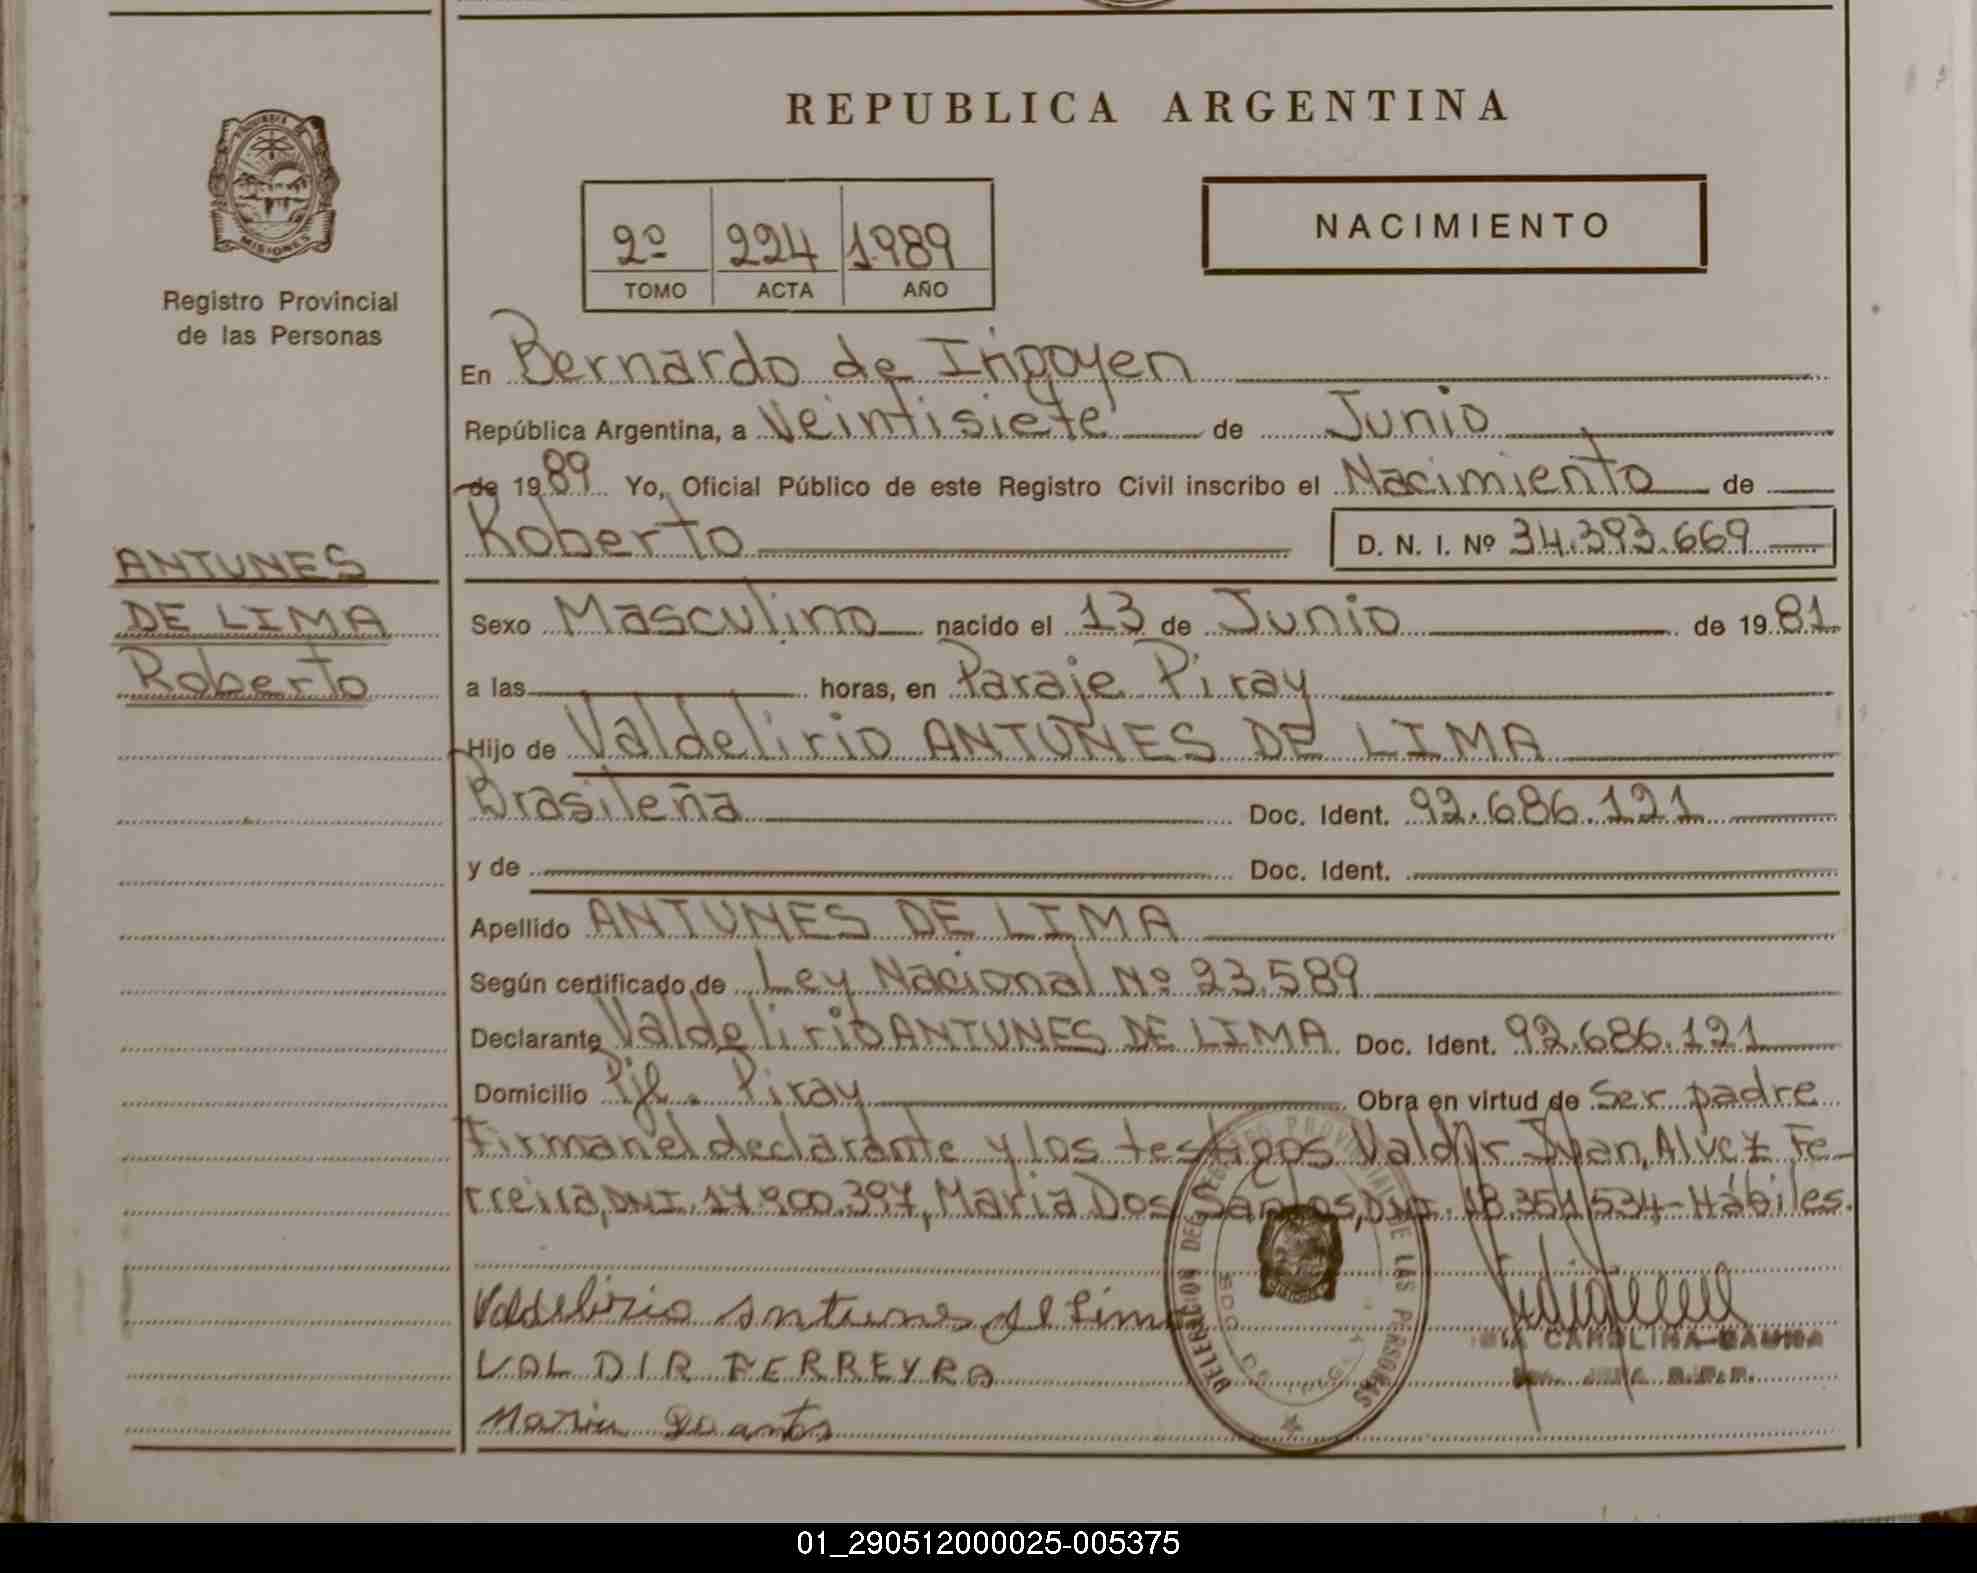 REPUBLICA ARGENTINA
PROVINCIA DE
MISIONES
Registro Provincial
de las Personas
2º 224 1.989
TOMO ACTA AÑO
NACIMIENTO
En Bernardo de Irigoyen
República Argentina, a Veintisiete de Junio
de 1989 Yo, Oficial Público de este Registro Civil inscribo el Nacimiento de
Roberto D. N. I. Nº 34.393.669
ANTUNES
DE LIMA
Roberto
Sexo Masculino nacido el 13 de Junio de 1981
a las horas, en Paraje Piray
Hijo de Valdelirio ANTUNES DE LIMA
Brasileña Doc. Ident. 92.686.121
y de Doc. Ident.
Apellido ANTUNES DE LIMA
Según certificado de Ley Nacional Nº 23.589
Declarante Valdelirio ANTUNES DE LIMA Doc. Ident. 92.686.121
Domicilio Pje. Piray Obra en virtud de Ser padre
Firman el declarante y los testigos Valdir Ivan, Alvez Fe-
rreira, DNI. 17.900.397, Maria Dos Santos, DNI. 18.351.534-Hábiles.
Valdelirio Antunes de Lima
VALDIR FERREYRA
Maria
DELEGACION DEL REGISTRO PROVINCIAL DE LAS PERSONAS
CAROLINA
01_290512000025-005375